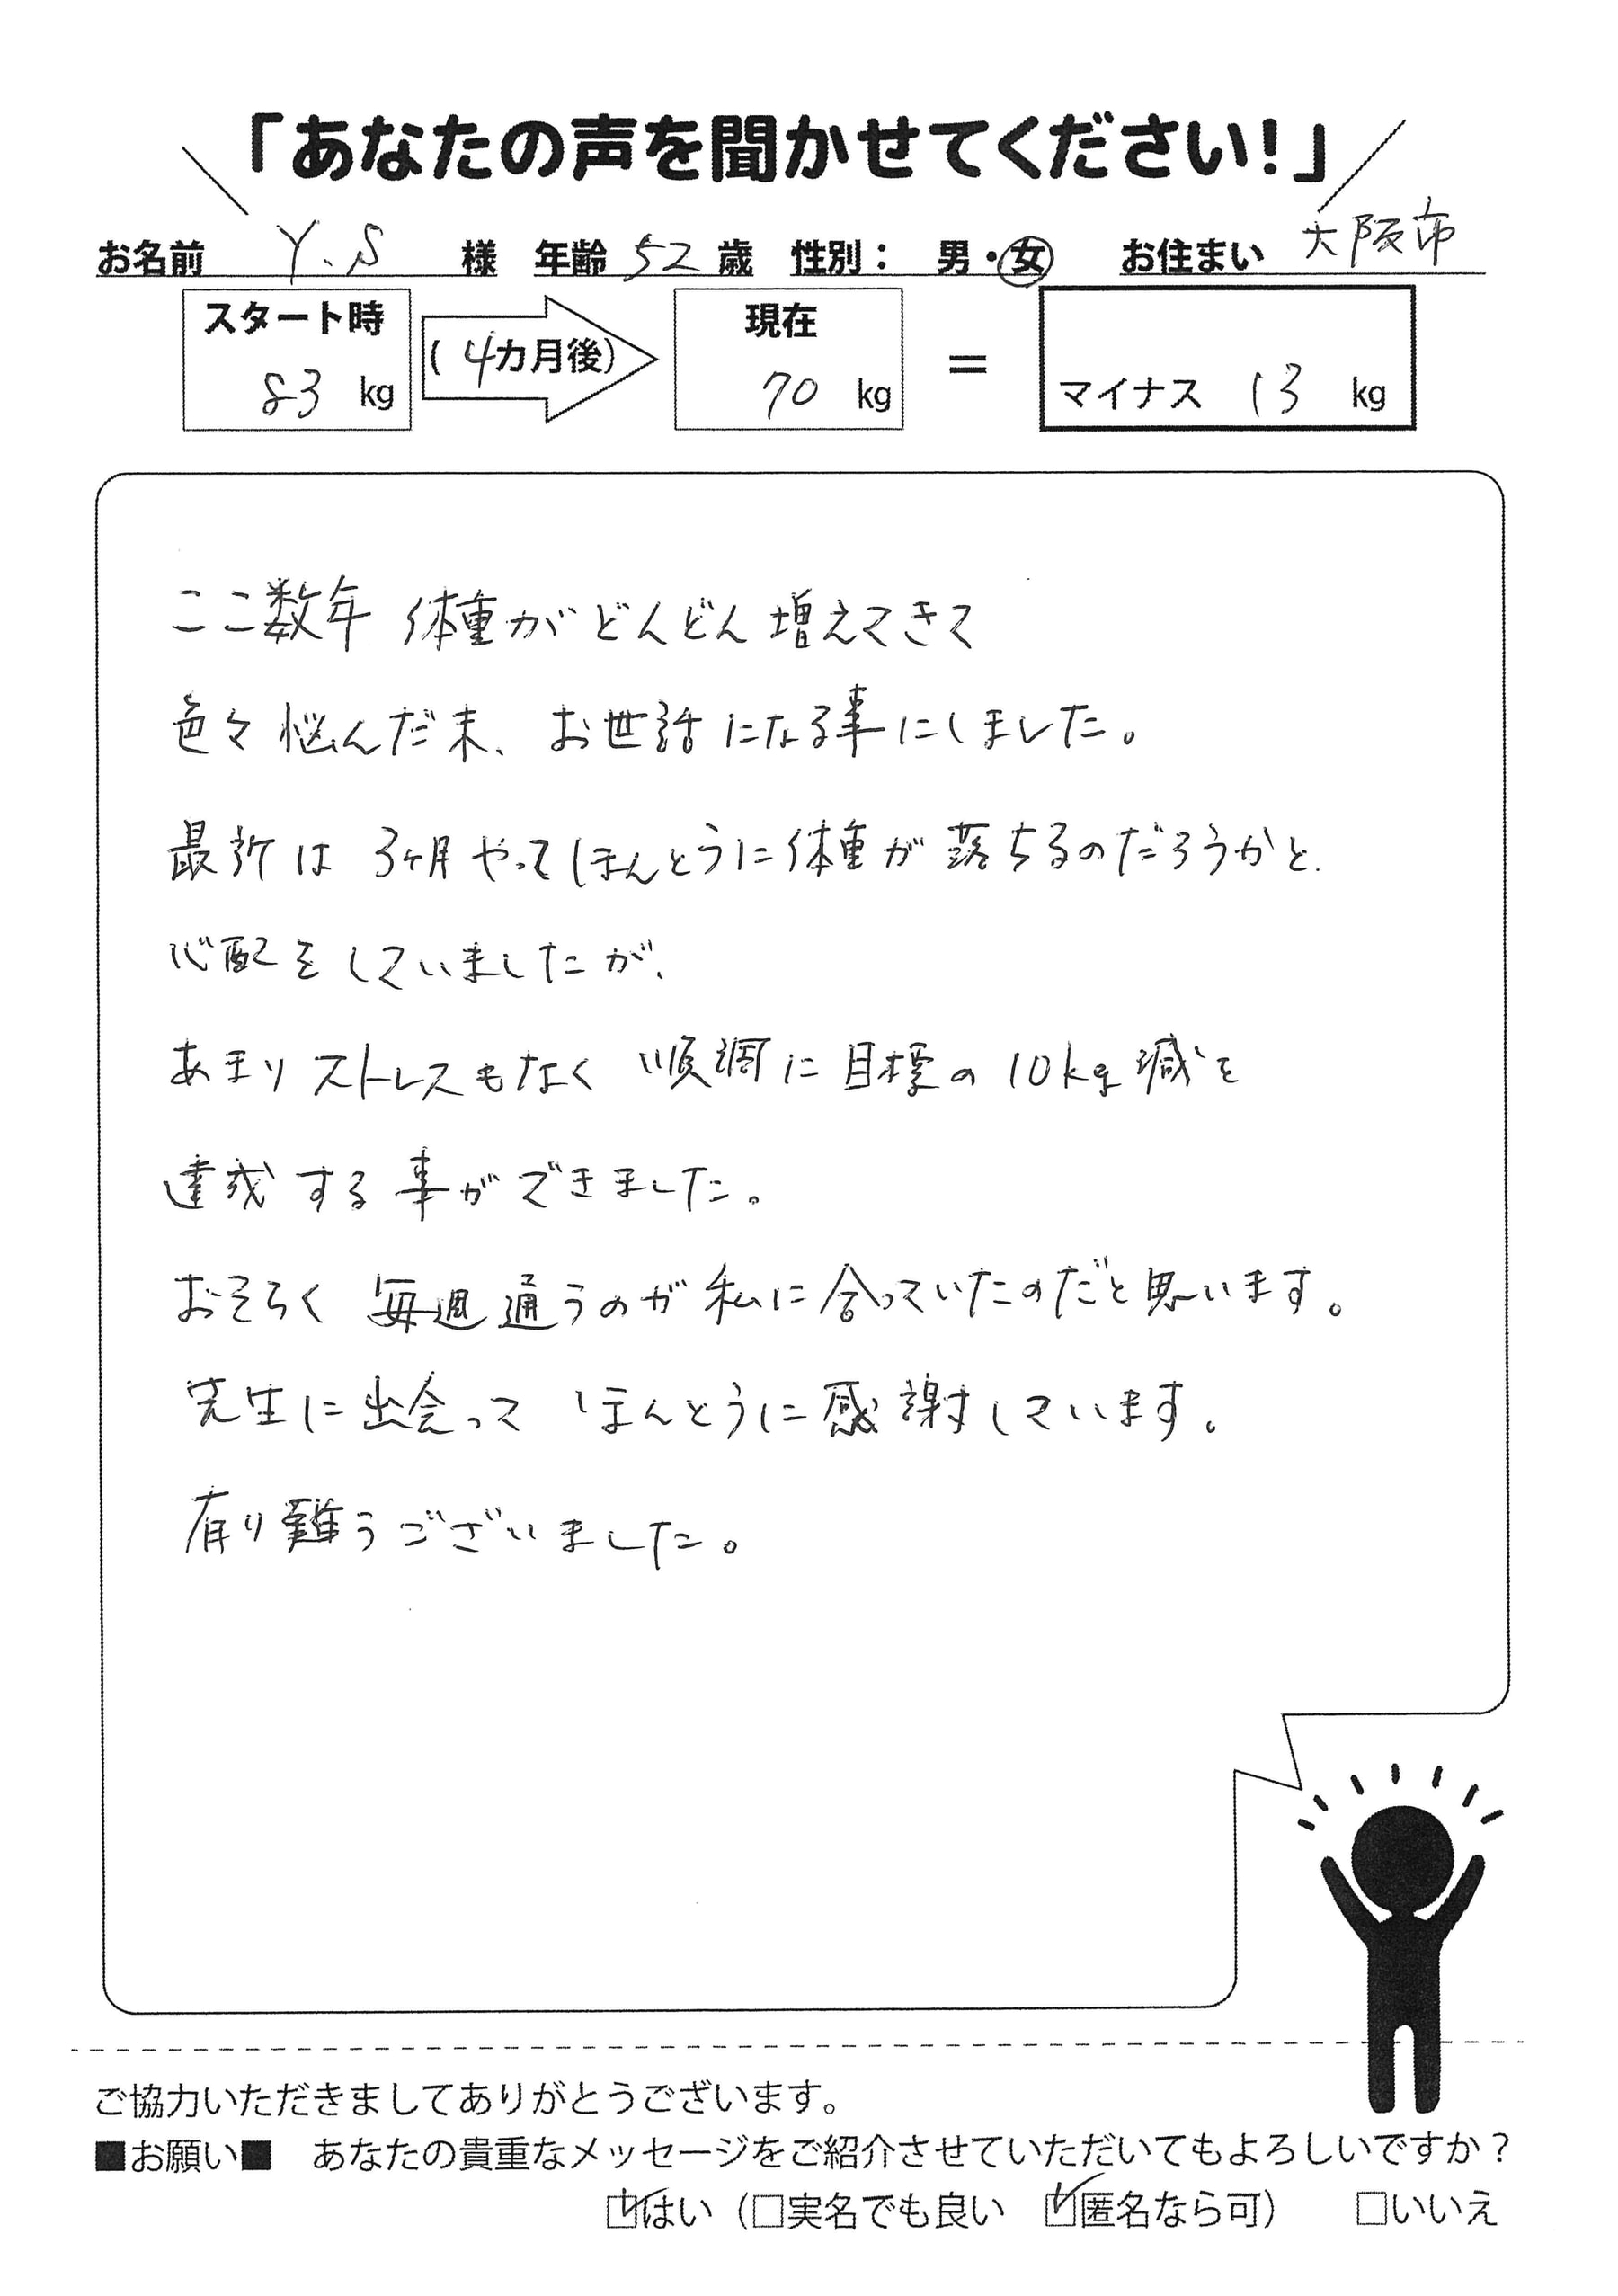 「あなたの声を聞かせてください!」
お名前 Y.S 様 年齢 52 歳 性別： 男・女 お住まい 大阪市
スタート時 83 kg
( 4カ月後)
現在 70 kg
=
マイナス 13 kg
ここ数年 体重がどんどん増えてきて
色々悩んだ末、お世話になる事にしました。
最初は 3ヶ月やってほんとうに体重が落ちるのだろうかと
心配をしていましたが、
あまりストレスもなく 順調に目標の10kg減を
達成する事ができました。
おそらく 毎週通うのが私に合っていたのだと思います。
先生に出会って ほんとうに感謝しています。
有り難うございました。
ご協力いただきましてありがとうございます。
■お願い■ あなたの貴重なメッセージをご紹介させていただいてもよろしいですか？
☑はい（□実名でも良い ☑匿名なら可） □いいえ